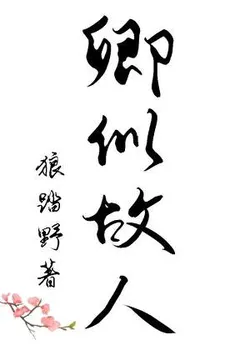 卿似故人
狼踏野著